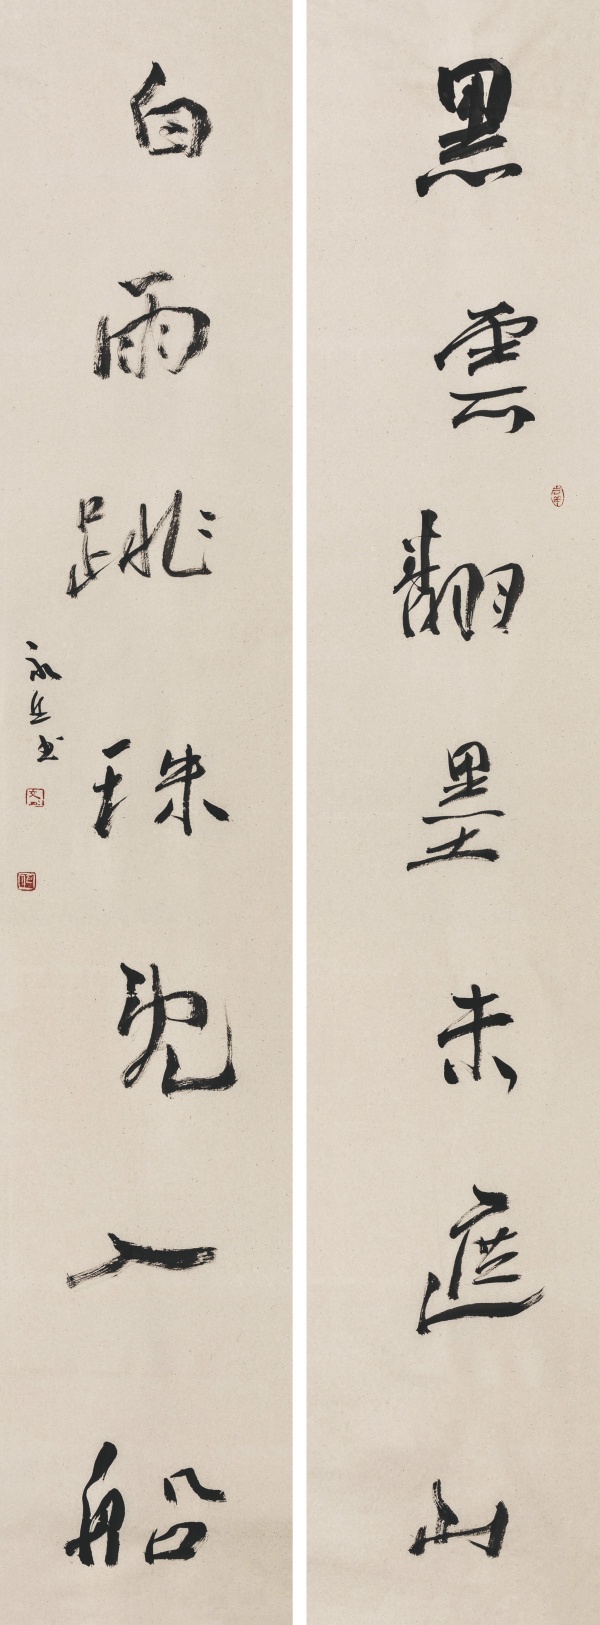 黑雲翻墨未遮山
白雨跳珠亂入船
永丘书